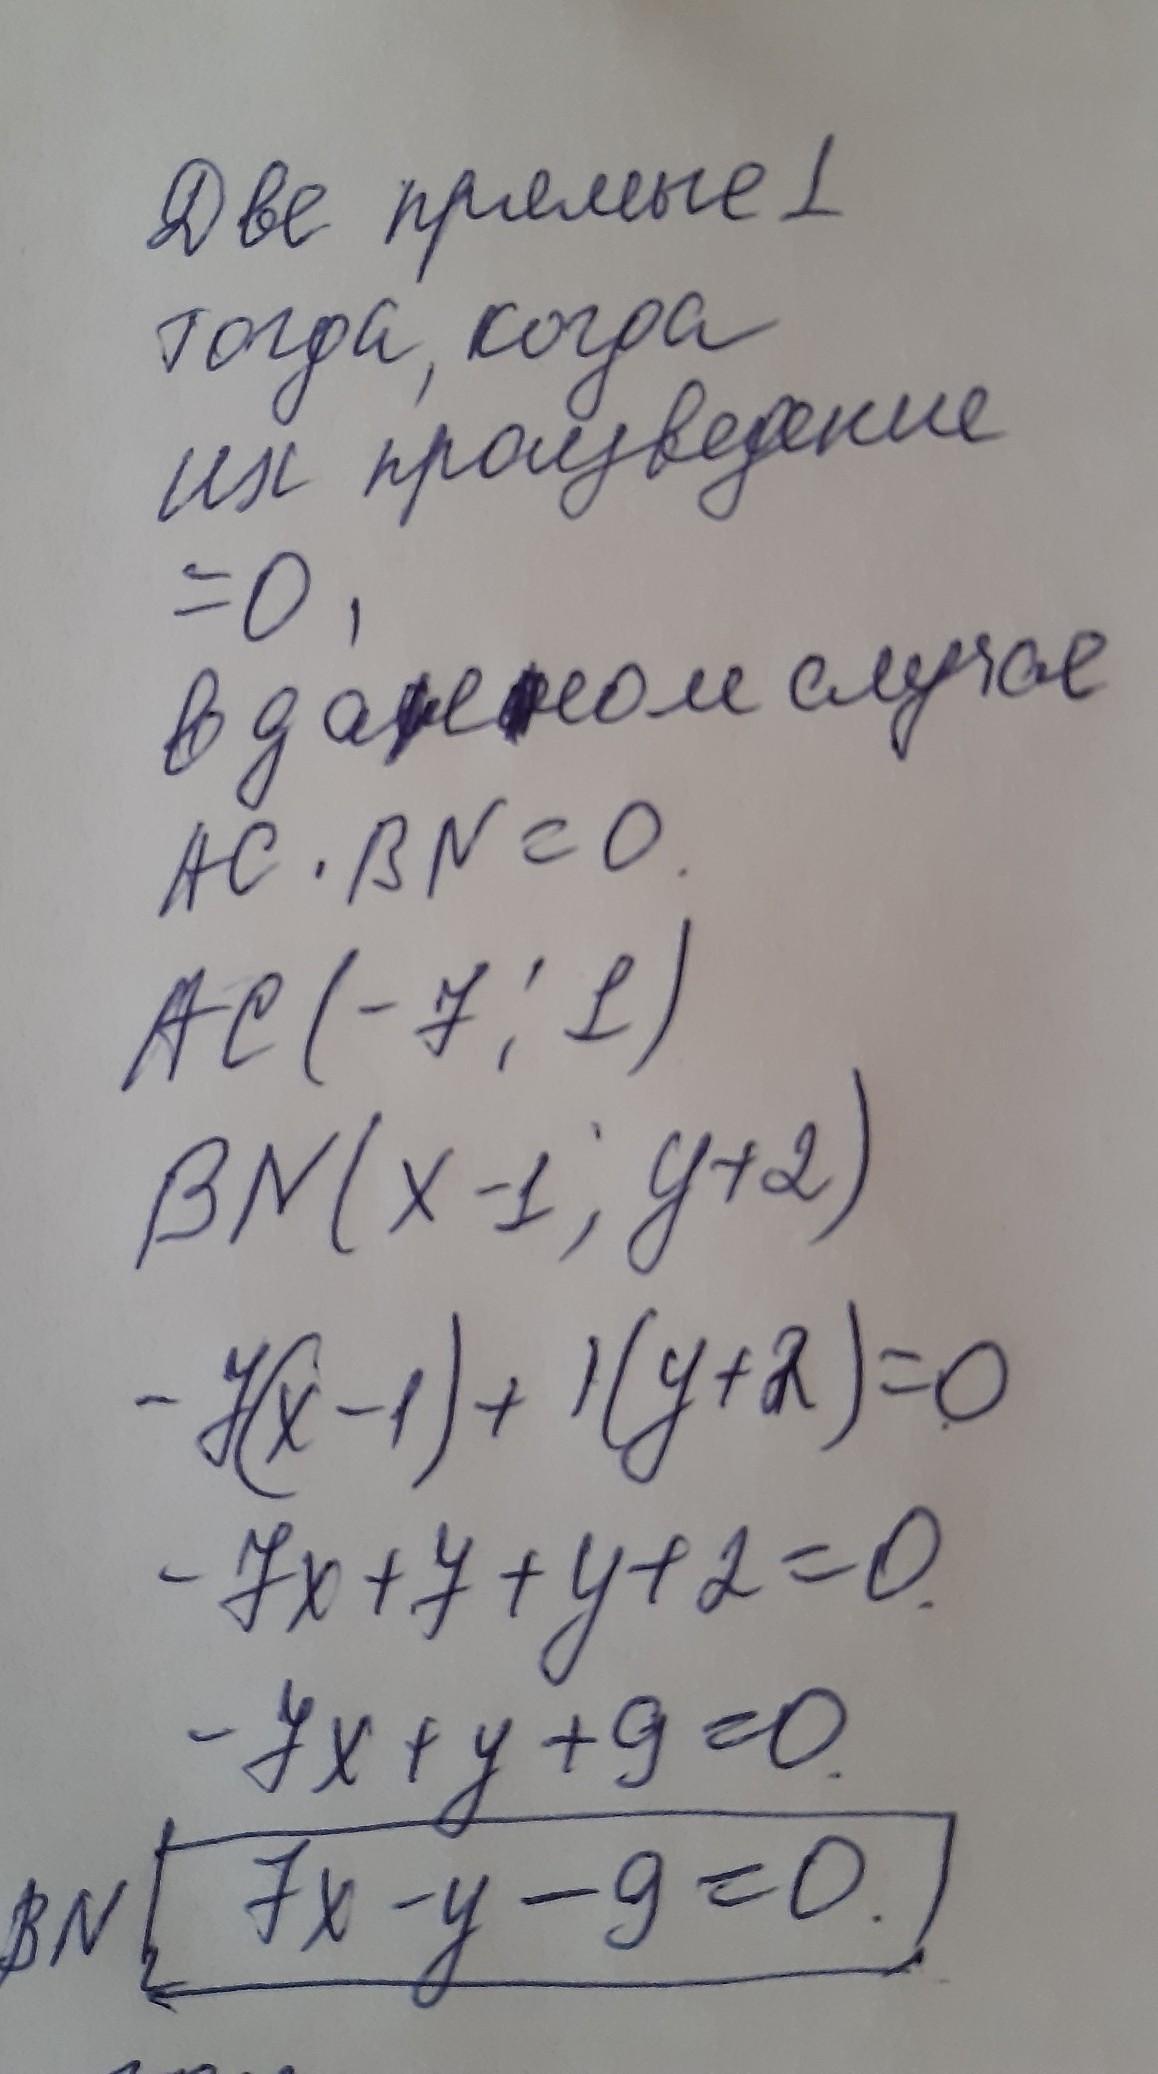 Две прямые ⊥
тогда, когда
их произведение
=0,
в данном случае
AC · BN = 0.
AC (-7; 1)
BN (x-1; y+2)
-7(x-1) + 1(y+2)=0
-7x+7+y+2=0.
-7x+y+9=0.
BN 7x-y-9=0.